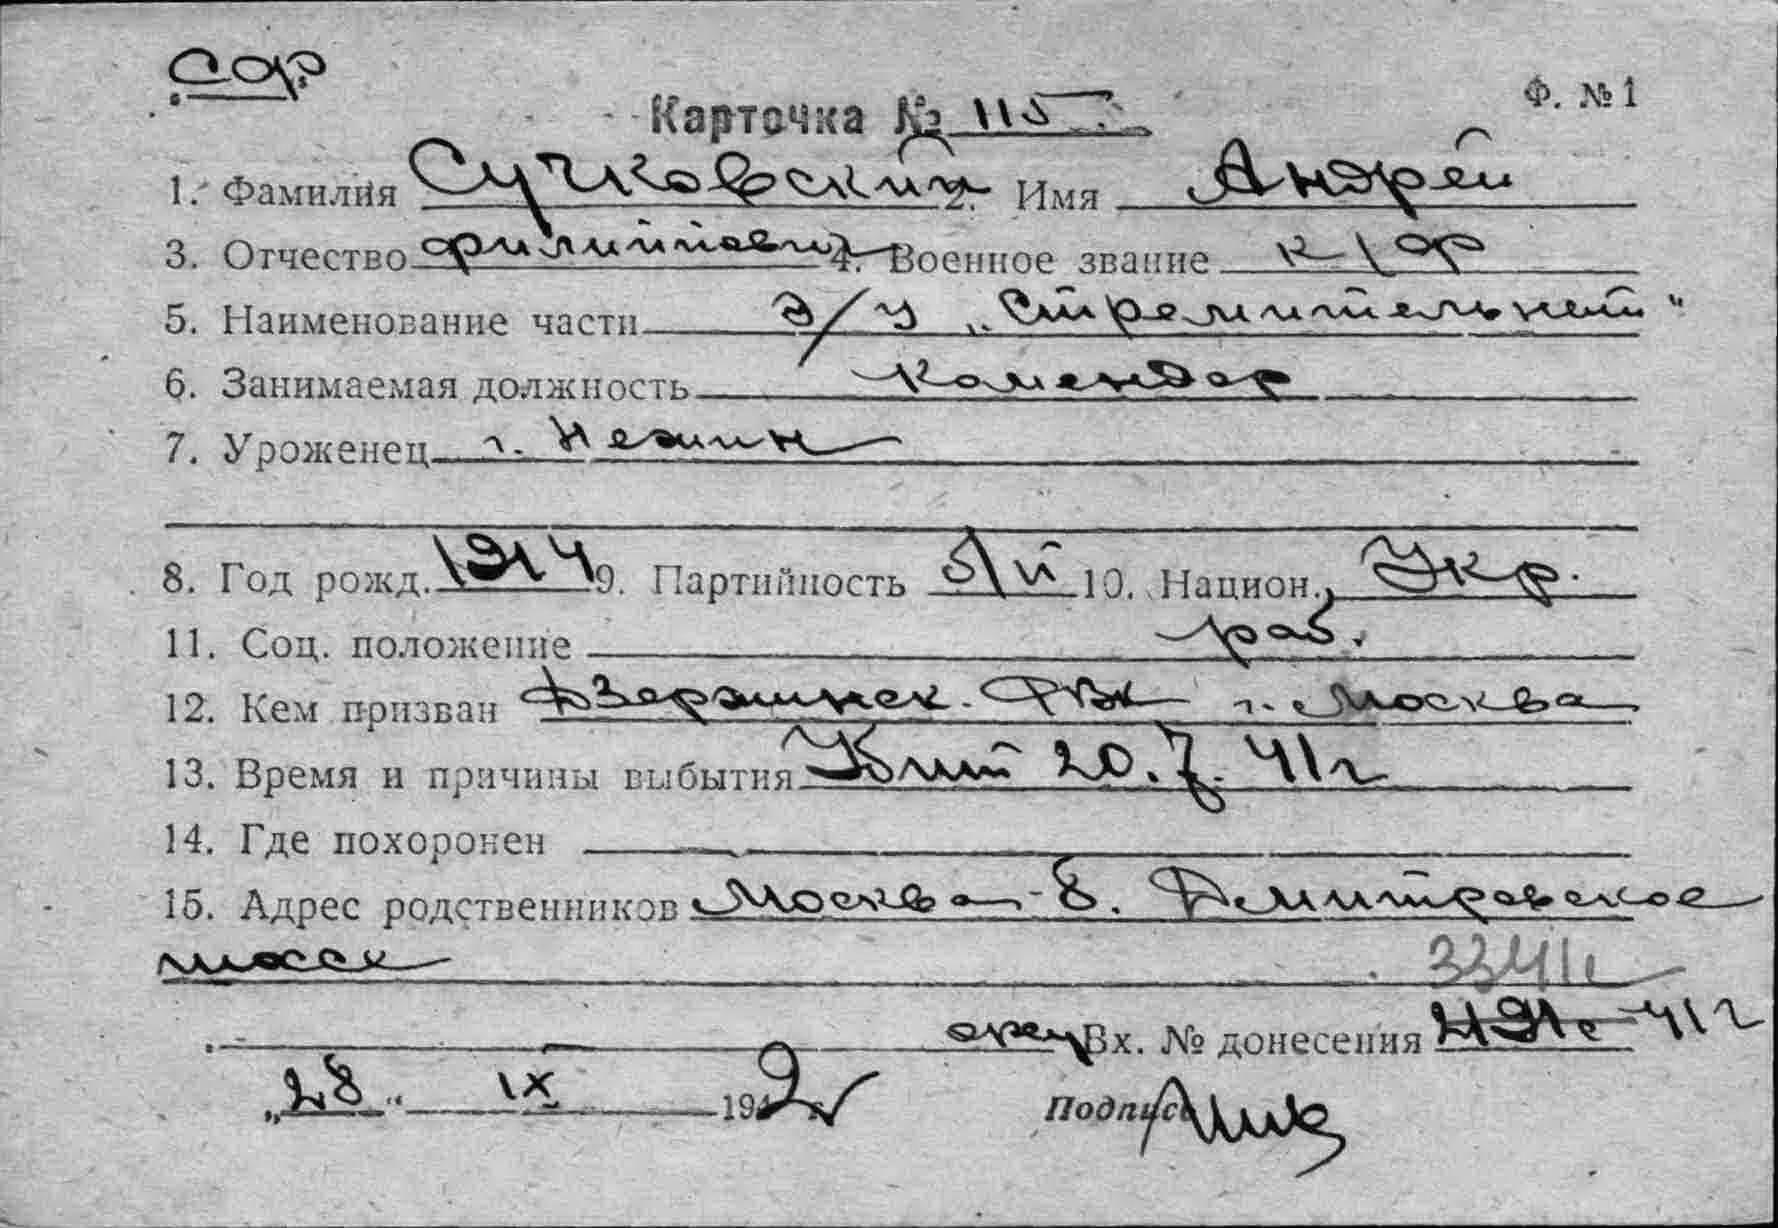 СФ
Ф. №1
Карточка № 115
1. Фамилия Сучковский 2. Имя Андрей
3. Отчество Филиппович 4. Военное звание к/ф
5. Наименование части Э/м „Стремительный"
6. Занимаемая должность Комендор
7. Уроженец г. Нежин
8. Год рожд. 1914 9. Партийность б/п 10. Национ. Укр.
11. Соц. положение раб.
12. Кем призван Дзержинск. РВК г. Москва
13. Время и причины выбытия Убит 20.7.41г
14. Где похоронен
15. Адрес родственников Москва-8. Дмитровское
шоссе
Вх. № донесения 41г
„28" IX 1942
Подпись